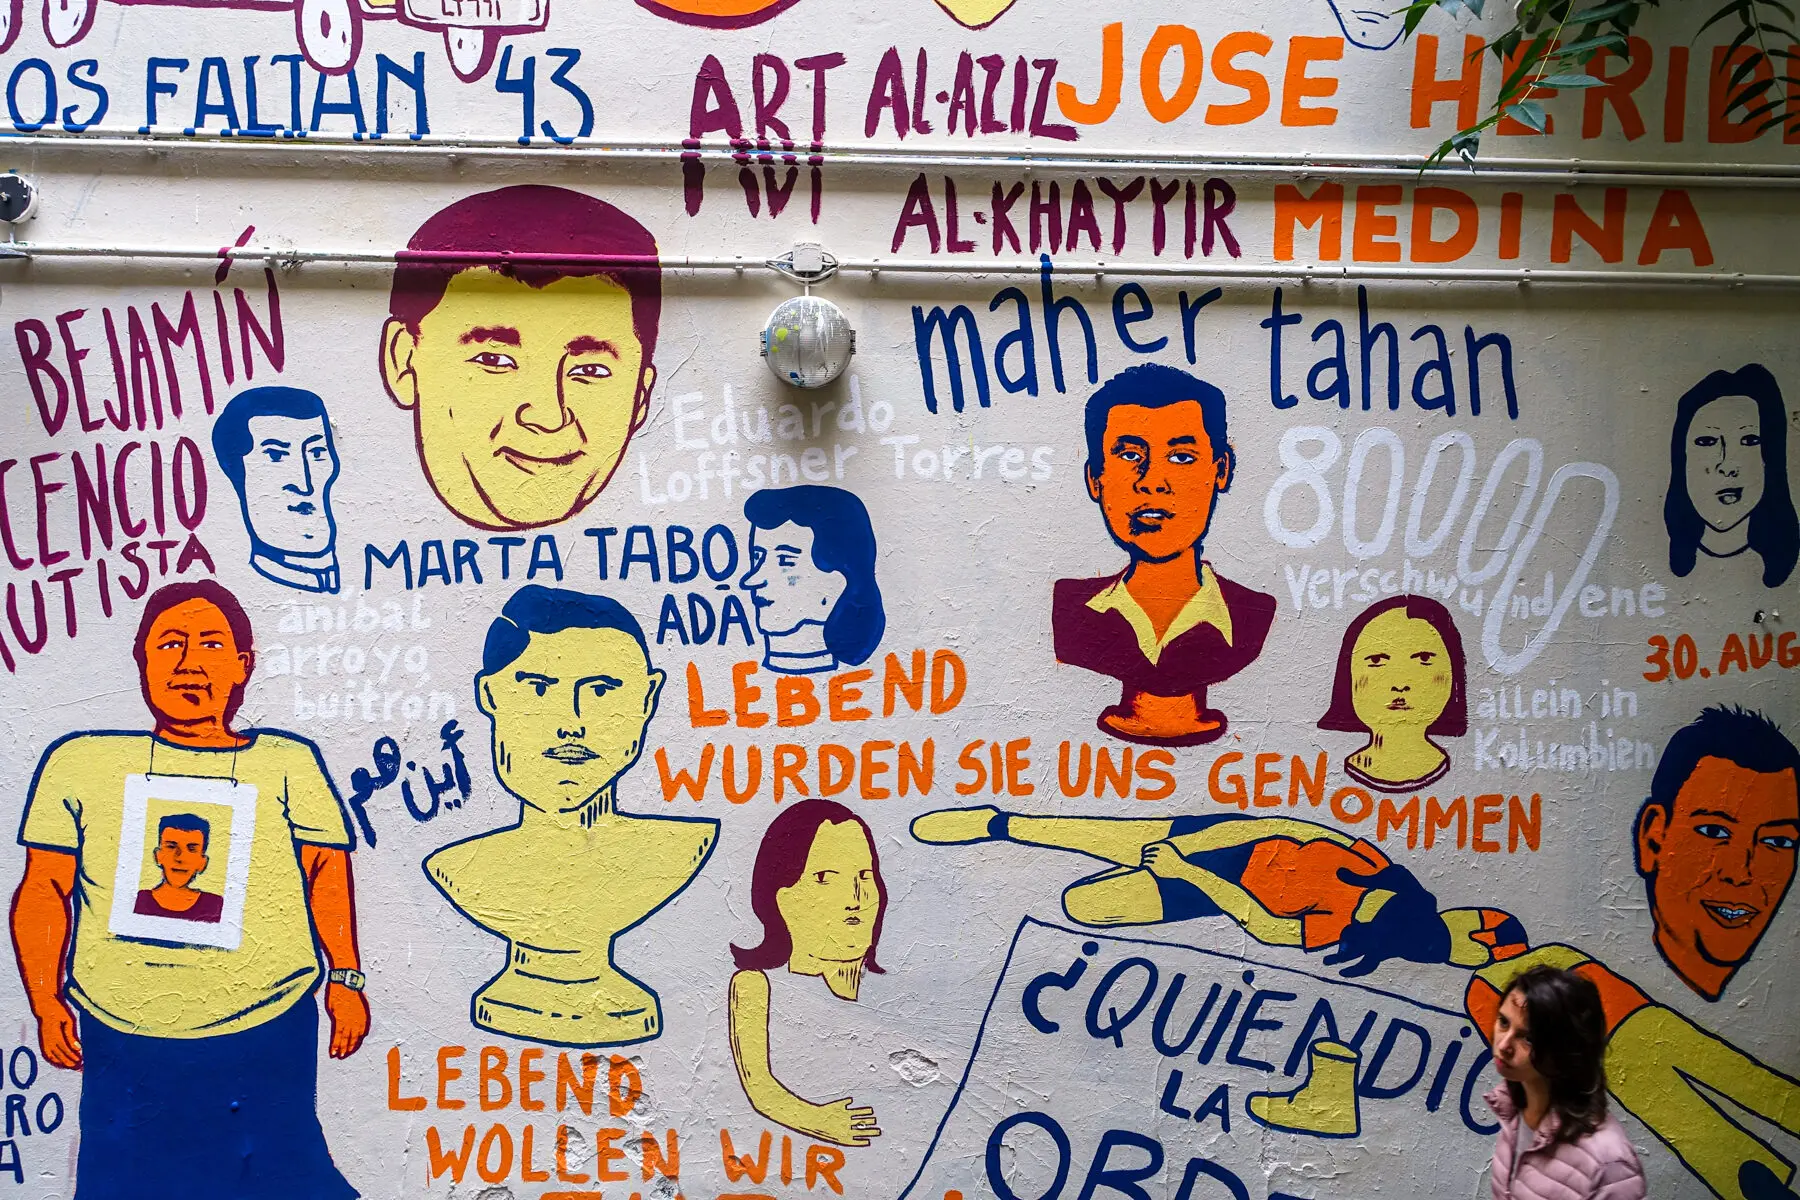 OS FALTAN 43
ART AL-AZIZ
AL-KHAYYIR
JOSE HERID
MEDINA
BEJAMÍN
CENCIO
AUTISTA
Eduardo
Loffsner Torres
maher tahan
MARTA TABO
ADA
80000
verschwundene
allein in
Kolumbien
30. AUG
aníbal
arroyo
buitrón
أين هم
LEBEND
WURDEN SIE UNS GENOMMEN
LEBEND
WOLLEN WIR
¿QUIEN DIO
LA
ORDE
IO
RO
A